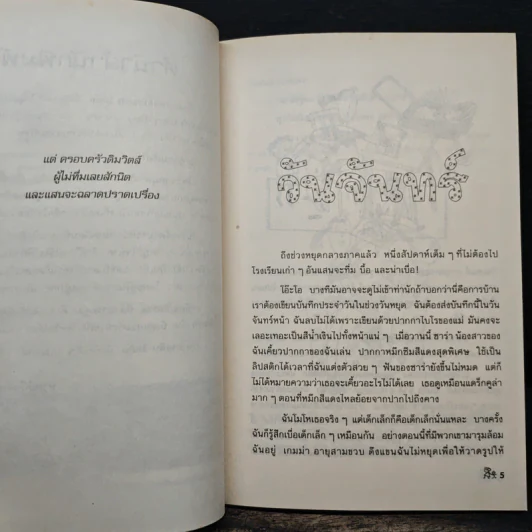 แด่ ครอบครัวดิมวิตส์
ผู้ไม่ทึ่มเลยสักนิด
และแสนจะฉลาดปราดเปรื่อง
วันจันทร์
ถึงช่วงหยุดกลางภาคแล้ว หนึ่งสัปดาห์เต็ม ๆ ที่ไม่ต้องไป
โรงเรียนเก่า ๆ อันแสนจะทึ่ม บื้อ และน่าเบื่อ!
โอ๊ะโอ บางทีมันอาจจะดูไม่เข้าท่านักถ้าบอกว่านี่คือการบ้าน
เราต้องเขียนบันทึกประจำวันในช่วงวันหยุด ฉันต้องส่งบันทึกนี้ในวัน
จันทร์หน้า ฉันลบไม่ได้เพราะเขียนด้วยปากกาไบโรของแม่ มันคงจะ
เลอะเทอะเป็นสีน้ำเงินไปทั้งหน้าแน่ ๆ เมื่อวานนี้ ซาร่า น้องสาวของ
ฉันเคี้ยวปากกาของฉันเล่น ปากกาหมึกซึมสีแดงสุดพิเศษ ใช้เป็น
ลิปสติกได้เวลาที่ฉันแต่งตัวสวย ๆ ฟันของซาร่ายังขึ้นไม่หมด แต่ก็
ไม่ได้หมายความว่าเธอจะเคี้ยวอะไรไม่ได้เลย เธอดูเหมือนแดร็กคูล่า
มาก ๆ ตอนที่หมึกสีแดงไหลย้อยจากปากไปถึงคาง
ฉันโมโหเธอจริง ๆ แต่เด็กเล็กก็คือเด็กเล็กนั่นแหละ บางครั้ง
ฉันก็รู้สึกเบื่อเด็กเล็ก ๆ เหมือนกัน อย่างตอนนี้ที่มีพวกเขามารุมล้อม
ฉันอยู่ เกมม่า อายุสามขวบ ดึงแขนฉันไม่หยุดเพื่อให้วาดรูปให้
5